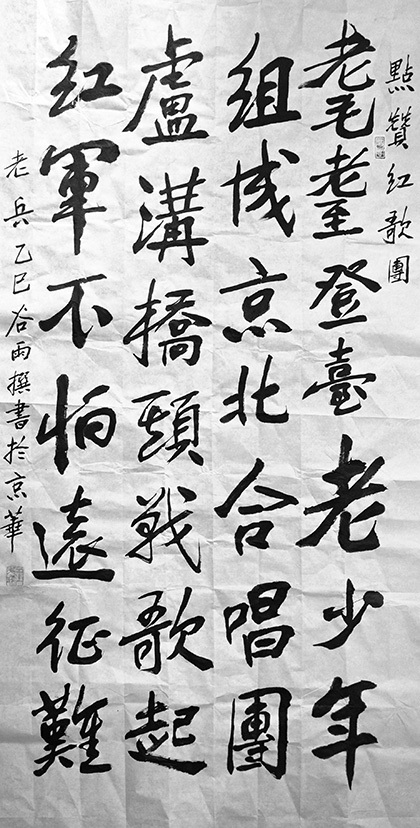 點贊红歌團
耄耋登臺老少年
組成京北合唱團
盧溝橋頭戰歌起
红軍不怕遠征難
老兵乙巳谷雨撰書於京華